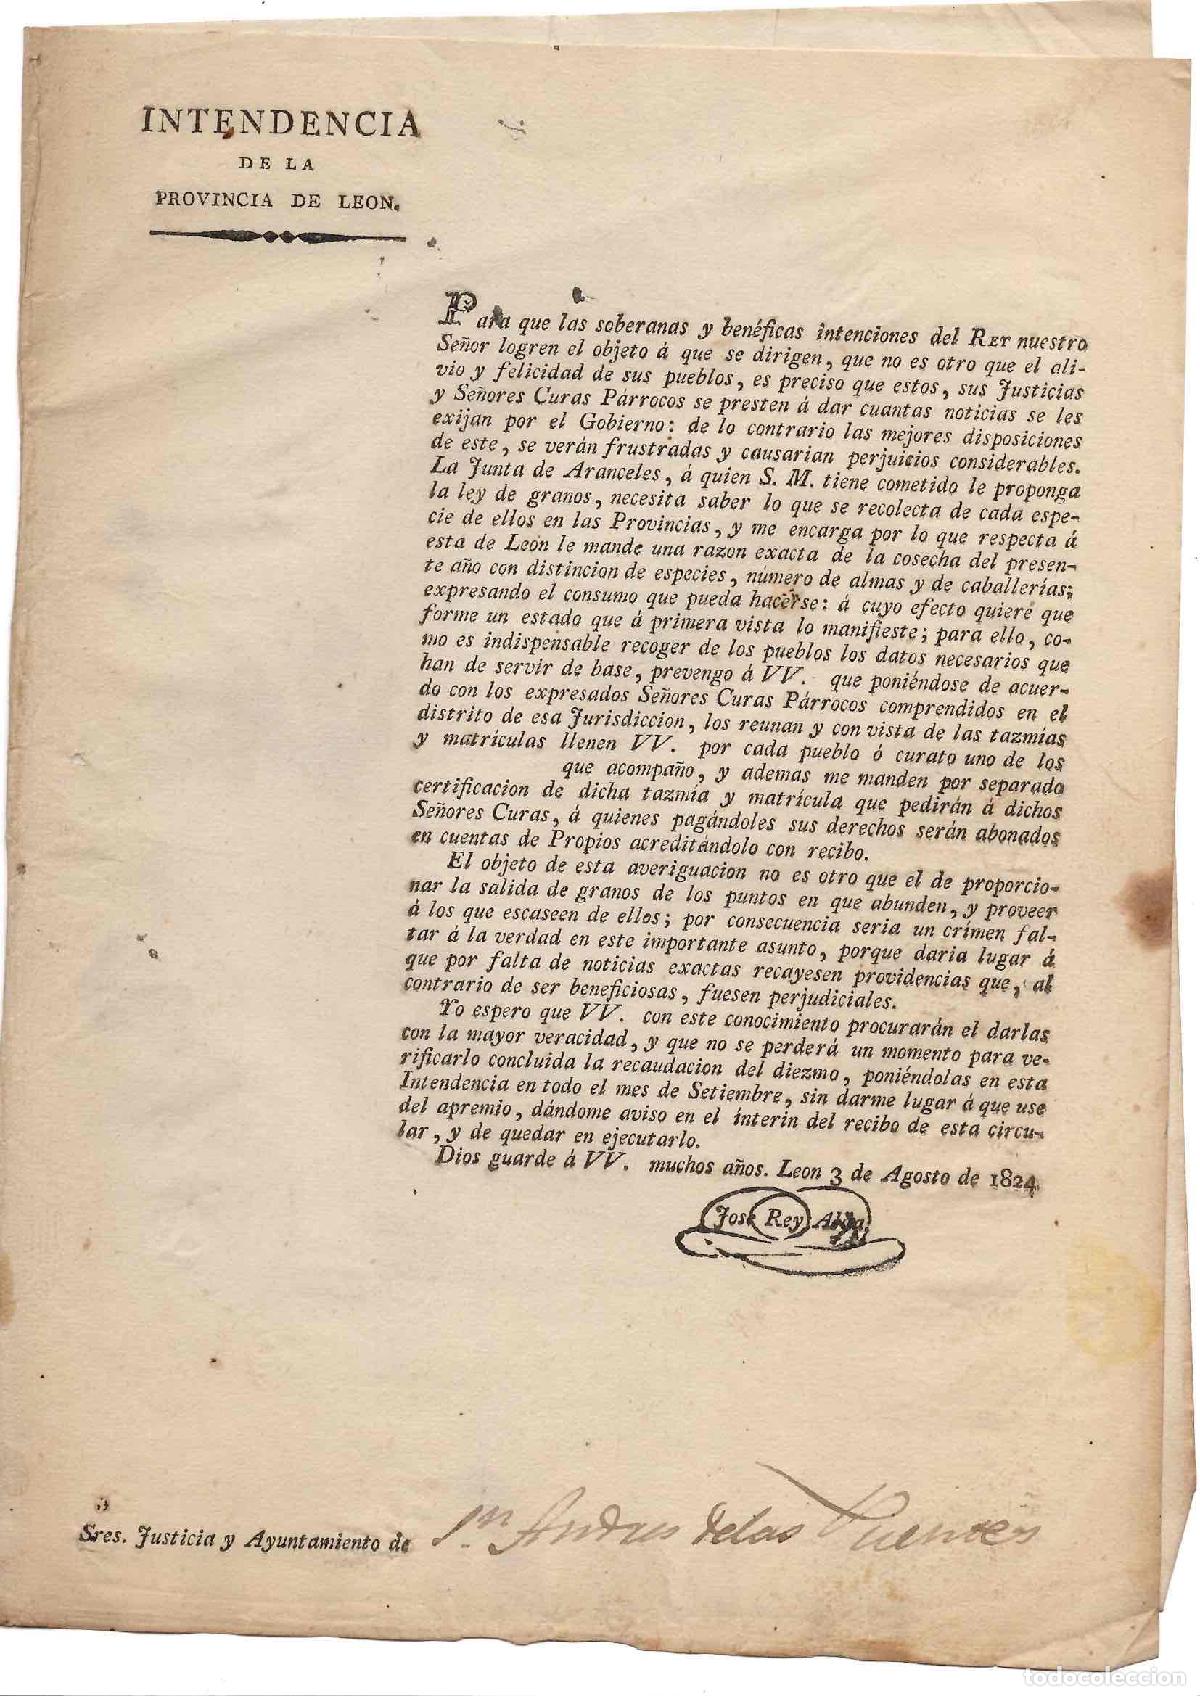 INTENDENCIA
DE LA
PROVINCIA DE LEON.
Para que las soberanas y benéficas intenciones del REY nuestro
Señor logren el objeto á que se dirigen, que no es otro que el ali-
vio y felicidad de sus pueblos, es preciso que estos, sus Justicias
y Señores Curas Párrocos se presten á dar cuantas noticias se les
exijan por el Gobierno: de lo contrario las mejores disposiciones
de este, se verán frustradas y causarian perjuicios considerables.
La Junta de Aranceles, á quien S. M. tiene cometido le proponga
la ley de granos, necesita saber lo que se recolecta de cada espe-
cie de ellos en las Provincias, y me encarga por lo que respecta á
esta de Leon le mande una razon exacta de la cosecha del presen-
te año con distincion de especies, número de almas y de caballerías;
expresando el consumo que pueda hacerse: á cuyo efecto quiere que
forme un estado que á primera vista lo manifieste; para ello, co-
mo es indispensable recoger de los pueblos los datos necesarios que
han de servir de base, prevengo á VV. que poniéndose de acuer-
do con los expresados Señores Curas Párrocos comprendidos en el
distrito de esa Jurisdiccion, los reunan y con vista de las tazmías
y matrículas llenen VV. por cada pueblo ó curato uno de los
que acompaño, y ademas me manden por separado
certificacion de dicha tazmía y matrícula que pedirán á dichos
Señores Curas, á quienes pagándoles sus derechos serán abonados
en cuentas de Propios acreditándolo con recibo.
El objeto de esta averiguacion no es otro que el de proporcio-
nar la salida de granos de los puntos en que abunden, y proveer
á los que escaseen de ellos; por consecuencia seria un crímen fal-
tar á la verdad en este importante asunto, porque daria lugar á
que por falta de noticias exactas recayesen providencias que, al
contrario de ser beneficiosas, fuesen perjudiciales.
Yo espero que VV. con este conocimiento procurarán el darlas
con la mayor veracidad, y que no se perderá un momento para ve-
rificarlo concluida la recaudacion del diezmo, poniéndolas en esta
Intendencia en todo el mes de Setiembre, sin darme lugar á que use
del apremio, dándome aviso en el ínterin del recibo de esta circu-
lar, y de quedar en ejecutarlo.
Dios guarde á VV. muchos años. Leon 3 de Agosto de 1824.
José Rey Alda
Sres. Justicia y Ayuntamiento de Sn Andres de las Puentes
todocoleccion